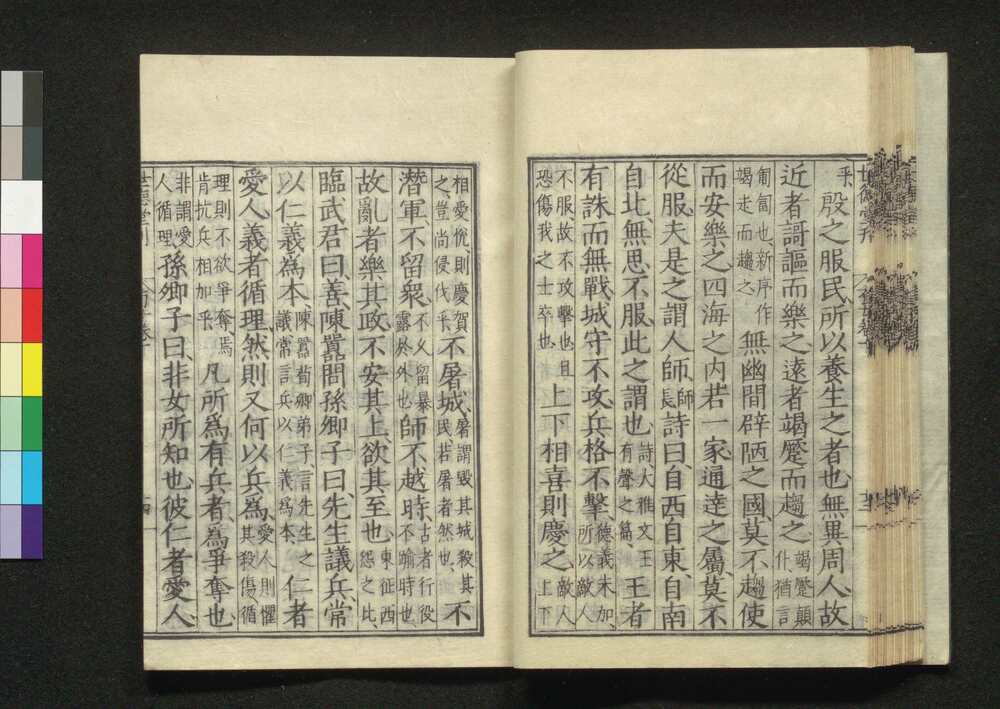 乎殷之服民所以養生之者也無異周人故
近者謌謳而樂之遠者竭蹷而趨之竭蹷顛仆猶言
匍匐也新序作竭走而趨之無幽閒辟陋之國莫不趨使
而安樂之四海之内若一家通達之屬莫不
從服夫是之謂人師師長詩曰自西自東自南
自北無思不服此之謂也詩大雅文王有聲之篇王者
有誅而無戰城守不攻兵格不擊德義未加所以敵人
不服故不攻擊也且恐傷我之士卒也上下相喜則慶之敵人上下
相愛悅則慶賀之豈尚侵伐乎不屠城屠謂毀其城殺其民若屠者然也不
潛軍不留衆不久留暴露於外也師不越時古者行役不踰時也
故亂者樂其政不安其上欲其至也東征西怨之比
臨武君曰善陳囂問孫卿子曰先生議兵常
以仁義爲本陳囂荀卿弟子言先生之議常言兵以仁義爲本仁者
愛人義者循理然則又何以兵爲愛人則懼其殺傷循
理則不欲爭奪焉肯抗兵相加乎凡所爲有兵者爲爭奪也
非謂愛人循理孫卿子曰非女所知也彼仁者愛人